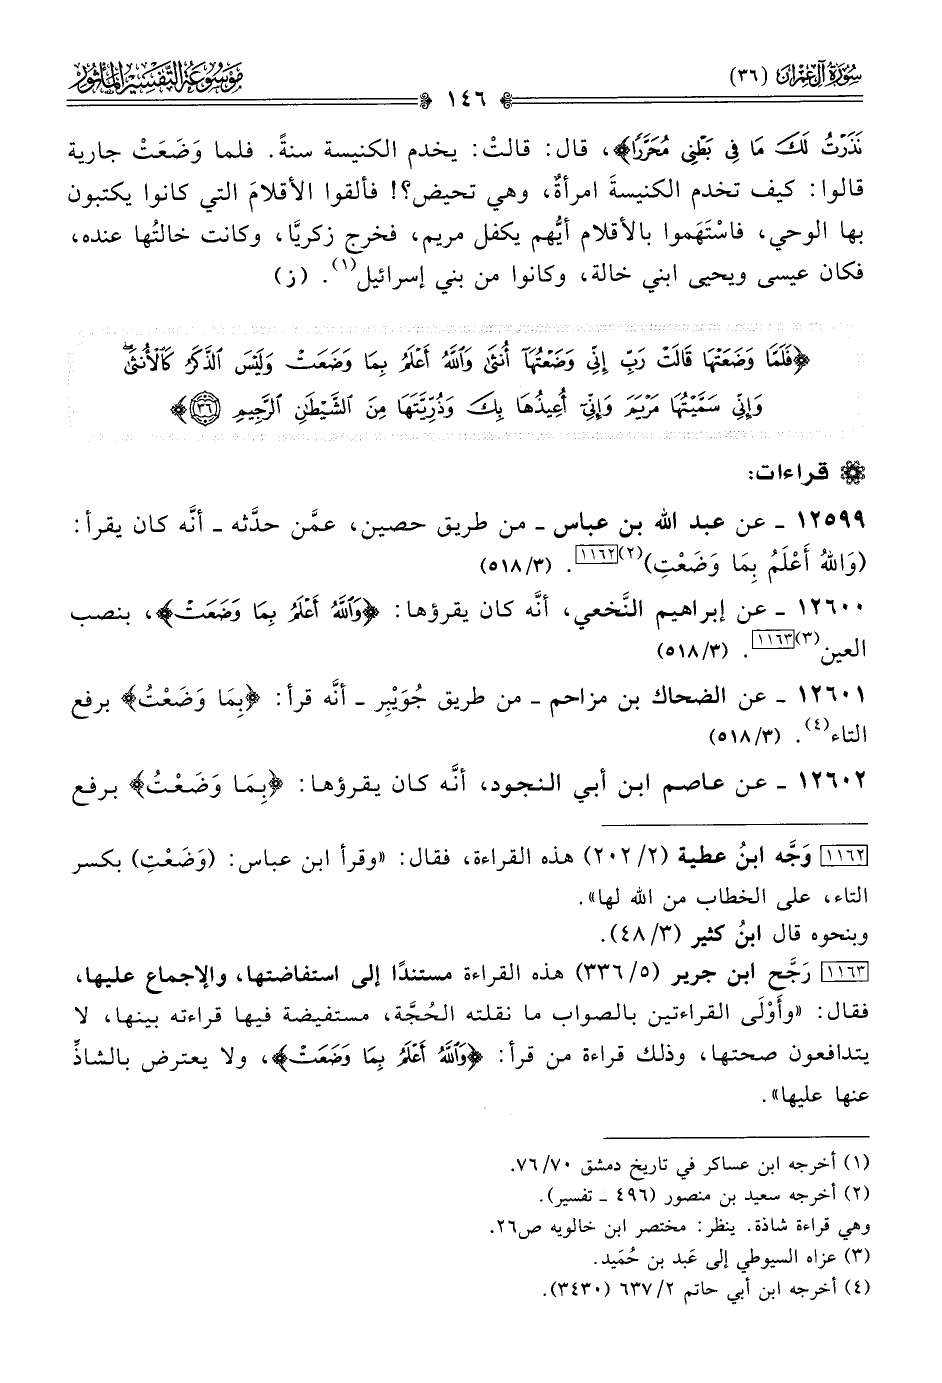 سُورَةُ آلِ عِمْرَان (٣٦)
مَوْسُوعَةُ التَّفْسِيرِ المَأْثُور
١٤٦
نَذَرْتُ لَكَ مَا فِي بَطْنِي مُحَرَّرًا﴾، قال: قالتْ: يخدم الكنيسة سنةً. فلما وَضَعَتْ جارية
قالوا: كيف تخدم الكنيسةَ امرأةٌ، وهي تحيض؟! فألقوا الأقلامَ التي كانوا يكتبون
بها الوحي، فاسْتَهَموا بالأقلام أيُّهم يكفل مريم، فخرج زكريَّا، وكانت خالتُها عنده،
فكان عيسى ويحيى ابني خالة، وكانوا من بني إسرائيل(١). (ز)
﴿فَلَمَّا وَضَعَتْهَا قَالَتْ رَبِّ إِنِّي وَضَعْتُهَآ أُنثَىٰ وَٱللَّهُ أَعْلَمُ بِمَا وَضَعَتْ وَلَيْسَ ٱلذَّكَرُ كَٱلْأُنثَىٰۖ
وَإِنِّي سَمَّيْتُهَا مَرْيَمَ وَإِنِّيٓ أُعِيذُهَا بِكَ وَذُرِّيَّتَهَا مِنَ ٱلشَّيْطَٰنِ ٱلرَّجِيمِ ٣٦﴾
قراءات:
١٢٥٩٩ ـ عن عبد الله بن عباس ـ من طريق حصين، عمَّن حدَّثه ـ أنَّه كان يقرأ:
(وَاللهُ أَعْلَمُ بِمَا وَضَعْتِ)(٢)[١١٦٢]. (٥١٨/٣)
١٢٦٠٠ ـ عن إبراهيم النَّخعي، أنَّه كان يقرؤها: ﴿وَٱللَّهُ أَعْلَمُ بِمَا وَضَعَتْ﴾، بنصب
العين(٣)[١١٦٣]. (٥١٨/٣)
١٢٦٠١ ـ عن الضحاك بن مزاحم ـ من طريق جُوَيْبِر ـ أنَّه قرأ: ﴿بِمَا وَضَعْتُ﴾ برفع
التاء(٤). (٥١٨/٣)
١٢٦٠٢ ـ عن عاصم ابن أبي النجود، أنَّه كان يقرؤها: ﴿بِمَا وَضَعْتُ﴾ برفع
[١١٦٢] وَجَّه ابنُ عطية (٢٠٢/٢) هذه القراءة، فقال: «وقرأ ابن عباس: (وَضَعْتِ) بكسر
التاء، على الخطاب من الله لها».
وبنحوه قال ابنُ كثير (٤٨/٣).
[١١٦٣] رَجَّح ابن جرير (٣٣٦/٥) هذه القراءة مستندًا إلى استفاضتها، والإجماع عليها،
فقال: «وأَوْلَى القراءتين بالصواب ما نقلته الحُجَّة، مستفيضة فيها قراءته بينها، لا
يتدافعون صحتها، وذلك قراءة من قرأ: ﴿وَٱللَّهُ أَعْلَمُ بِمَا وَضَعَتْ﴾، ولا يعترض بالشاذِّ
عنها عليها».
(١) أخرجه ابن عساكر في تاريخ دمشق ٧٦/٧٠.
(٢) أخرجه سعيد بن منصور (٤٩٦ ـ تفسير).
وهي قراءة شاذة. ينظر: مختصر ابن خالويه ص٢٦.
(٣) عزاه السيوطي إلى عَبد بن حُمَيد.
(٤) أخرجه ابن أبي حاتم ٦٣٧/٢ (٣٤٣٠).